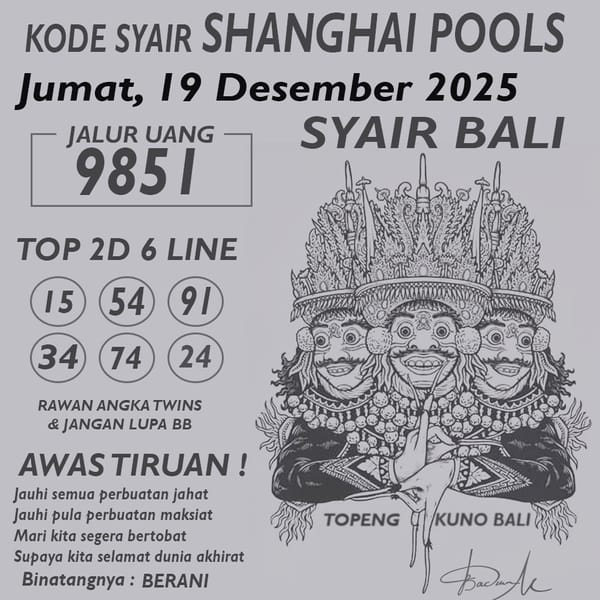 KODE SYAIR SHANGHAI POOLS
Jumat, 19 Desember 2025
JALUR UANG
9851
SYAIR BALI
TOP 2D 6 LINE
15 54 91
34 74 24
RAWAN ANGKA TWINS
& JANGAN LUPA BB
AWAS TIRUAN !
Jauhi semua perbuatan jahat
Jauhi pula perbuatan maksiat
Mari kita segera bertobat
Supaya kita selamat dunia akhirat
Binatangnya : BERANI
TOPENG KUNO BALI